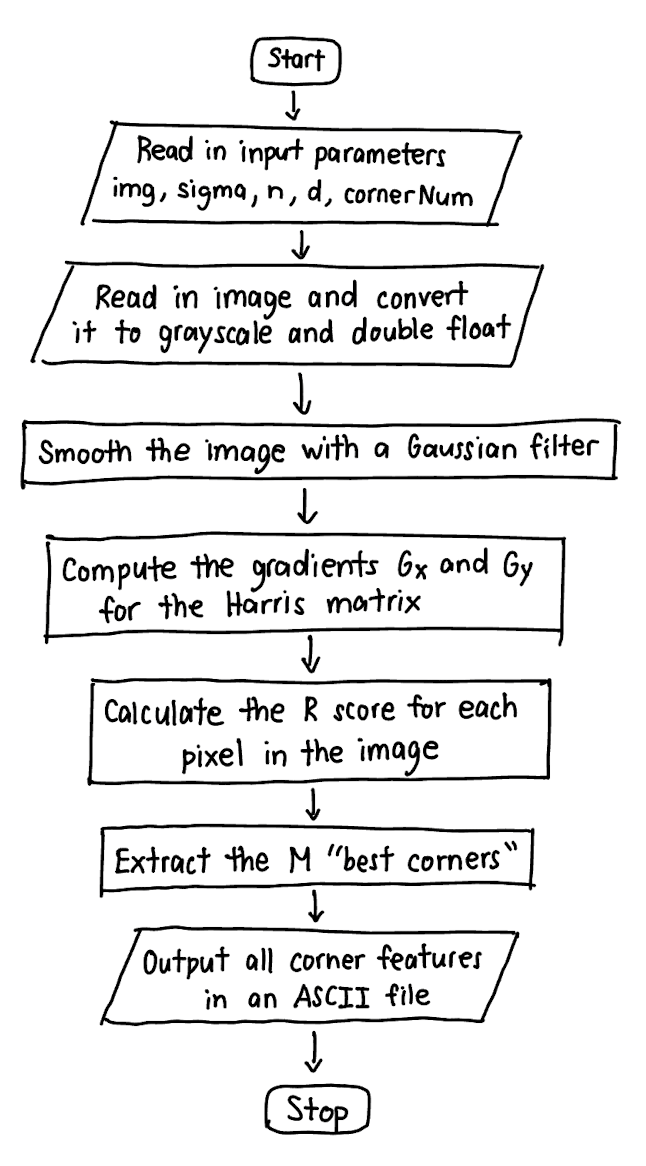 Start
Read in input parameters
img, sigma, n, d, cornerNum
Read in image and convert
it to grayscale and double float
Smooth the image with a Gaussian filter
Compute the gradients Gx and Gy
for the Harris matrix
Calculate the R score for each
pixel in the image
Extract the M "best corners"
Output all corner features
in an ASCII file
Stop